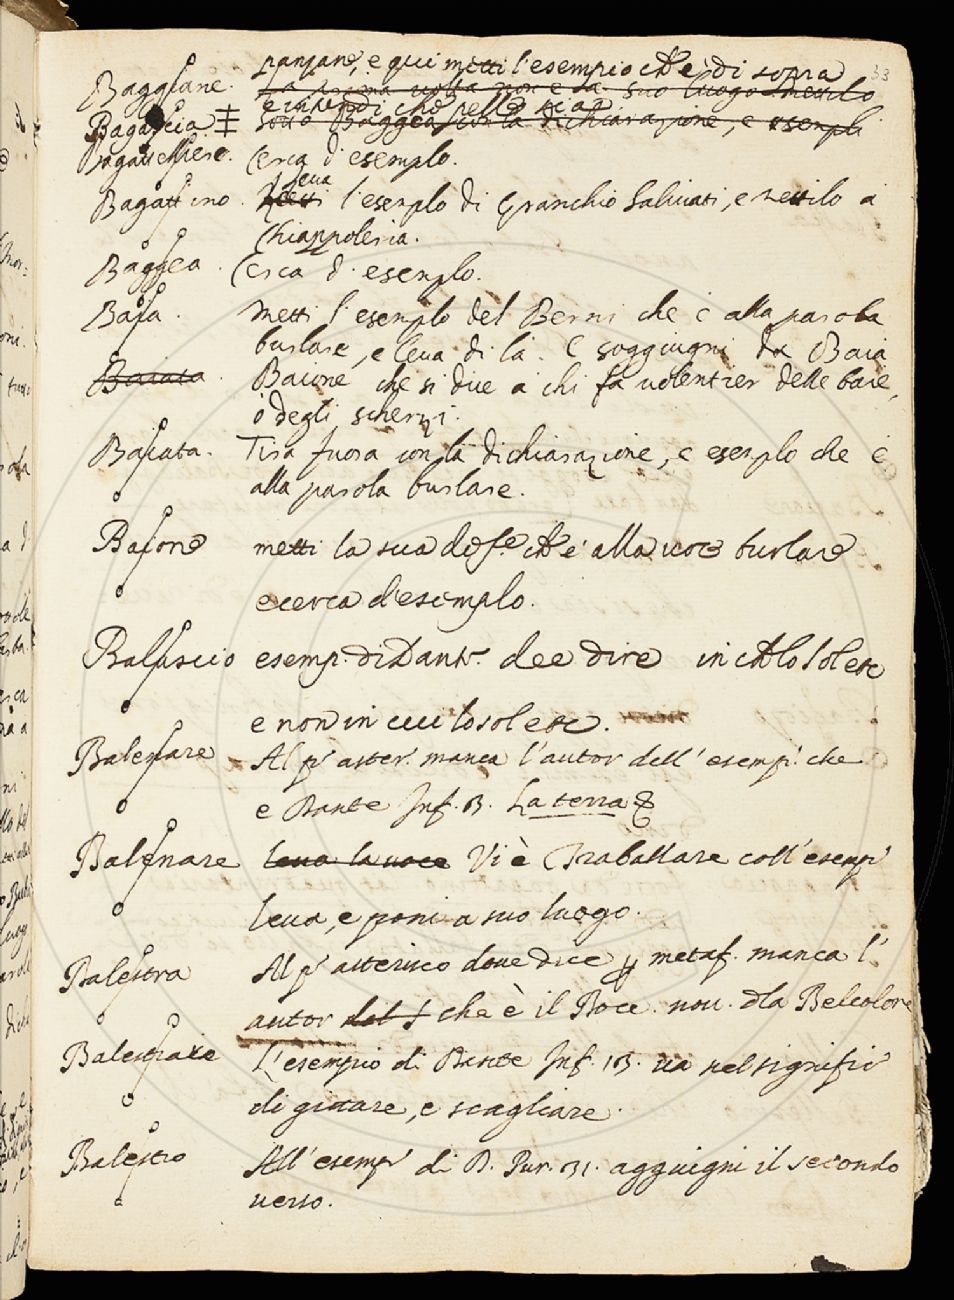 panzane, e qui metti l'esempio che è di sopra
33
Baggiane. La prima volta non è da suo luogo mettilo
e intendi che
Bagascia ‡ sotto Baggea con la dichiarazione, e esempli
Bagattelliere. Cerca d'esemplo.
leva
Bagattino. Metti l'esemplo di Granchio Salviati, e mettilo a
Chiappoleria.
Baggea. Cerca d'esemplo.
Baia. Metti l'esemplo del Berni che è alla parola
burlare, e leva di là. E soggiugni da Baia
Baiata. Baione che si dice a chi fa volentier delle baie,
ò degli scherzi.
Baiata. Tira fuora con la dichiarazione, e esemplo che è
alla parola burlare.
Baione metti la sua che è alla voce burlare
e cerca d'esemplo.
Balascio esemp. di Dant. dee dire in che lo sol etc
e non in cui lo sol etc.
Balenare Al p.º aster. manca l'autor dell'esemp. che
e Dante Inf. 3. La terra &
Balenare leva la voce Vi è Traballare coll'esemp.
leva, e poni a suo luogo.
Balestra Al p.º asterisco dove dice p metaf. manca l'
autor del che è il Bocc. nov. d̄la Belcolore
Balestrare L'esempio di Dante Inf. 13. va nel signific.
di gittare, e scagliare.
Balestro All'esemp. di D. Pur. 31. aggiugni il secondo
verso.